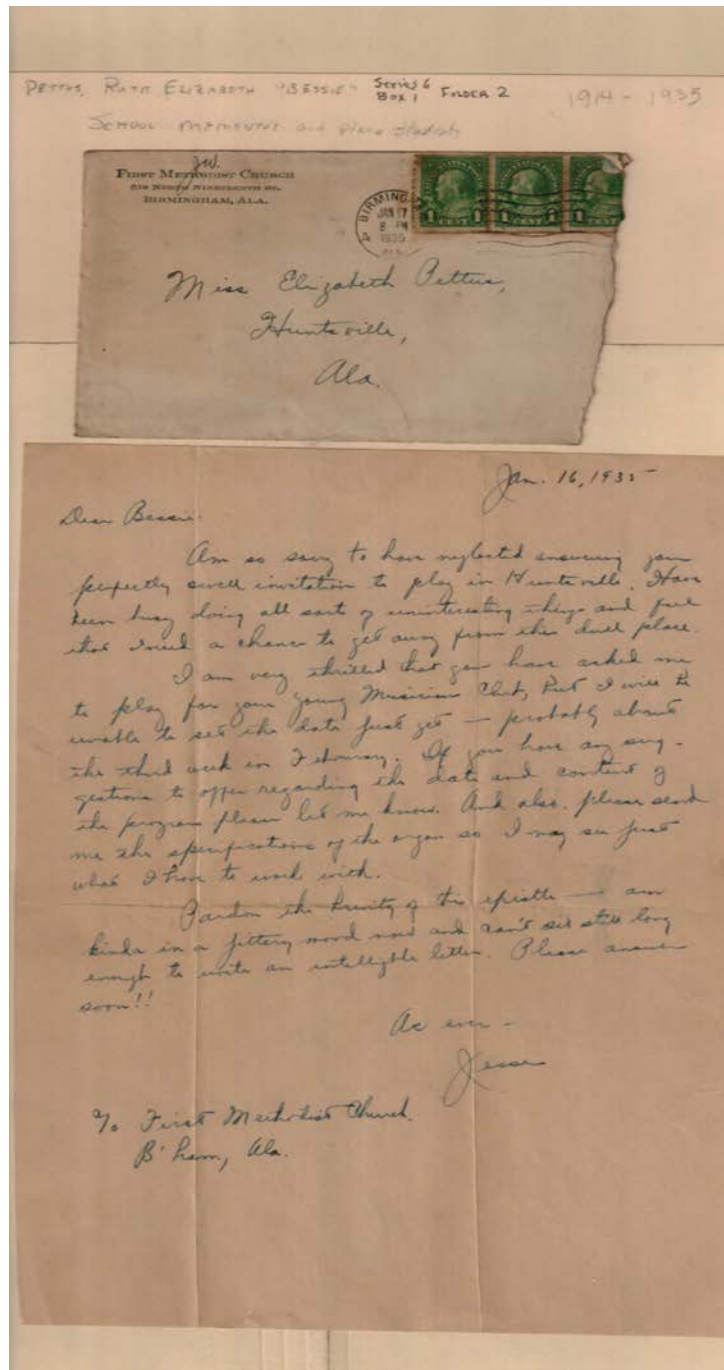 PETTUS, RUTH ELIZABETH "BESSIE" Series 6 Box 1 FOLDER 2 1914 - 1935
SCHOOL MEMENTOS and Piano Students
JW.
FIRST METHODIST CHURCH
BIRMINGHAM, ALA.
BIRMING
JAN 17
8 PM
1935
1 CENT 1 1 CENT 1 1 CENT
Miss Elizabeth Pettus,
Huntsville,
Ala.
Jan. 16, 1935
Dear Bessie:
Am so sorry to have neglected answering your
perfectly swell invitation to play in Huntsville. Have
been busy doing all sorts of uninteresting things and feel
that I need a chance to get away from this dull place.
I am very thrilled that you have asked me
to play for your young Musician Club, but I will be
unable to set the date just yet — probably about
the third week in February. If you have any sug-
gestions to offer regarding the date and content of
the program please let me know. And also, please send
me the specifications of the organ so I may see just
what I have to work with.
Pardon the brevity of this epistle — am
kinda in a jittery mood now and can't sit still long
enough to write an intelligible letter. Please answer
soon!!
As ever -
Jesse
c/o First Methodist Church.
B'ham, Ala.